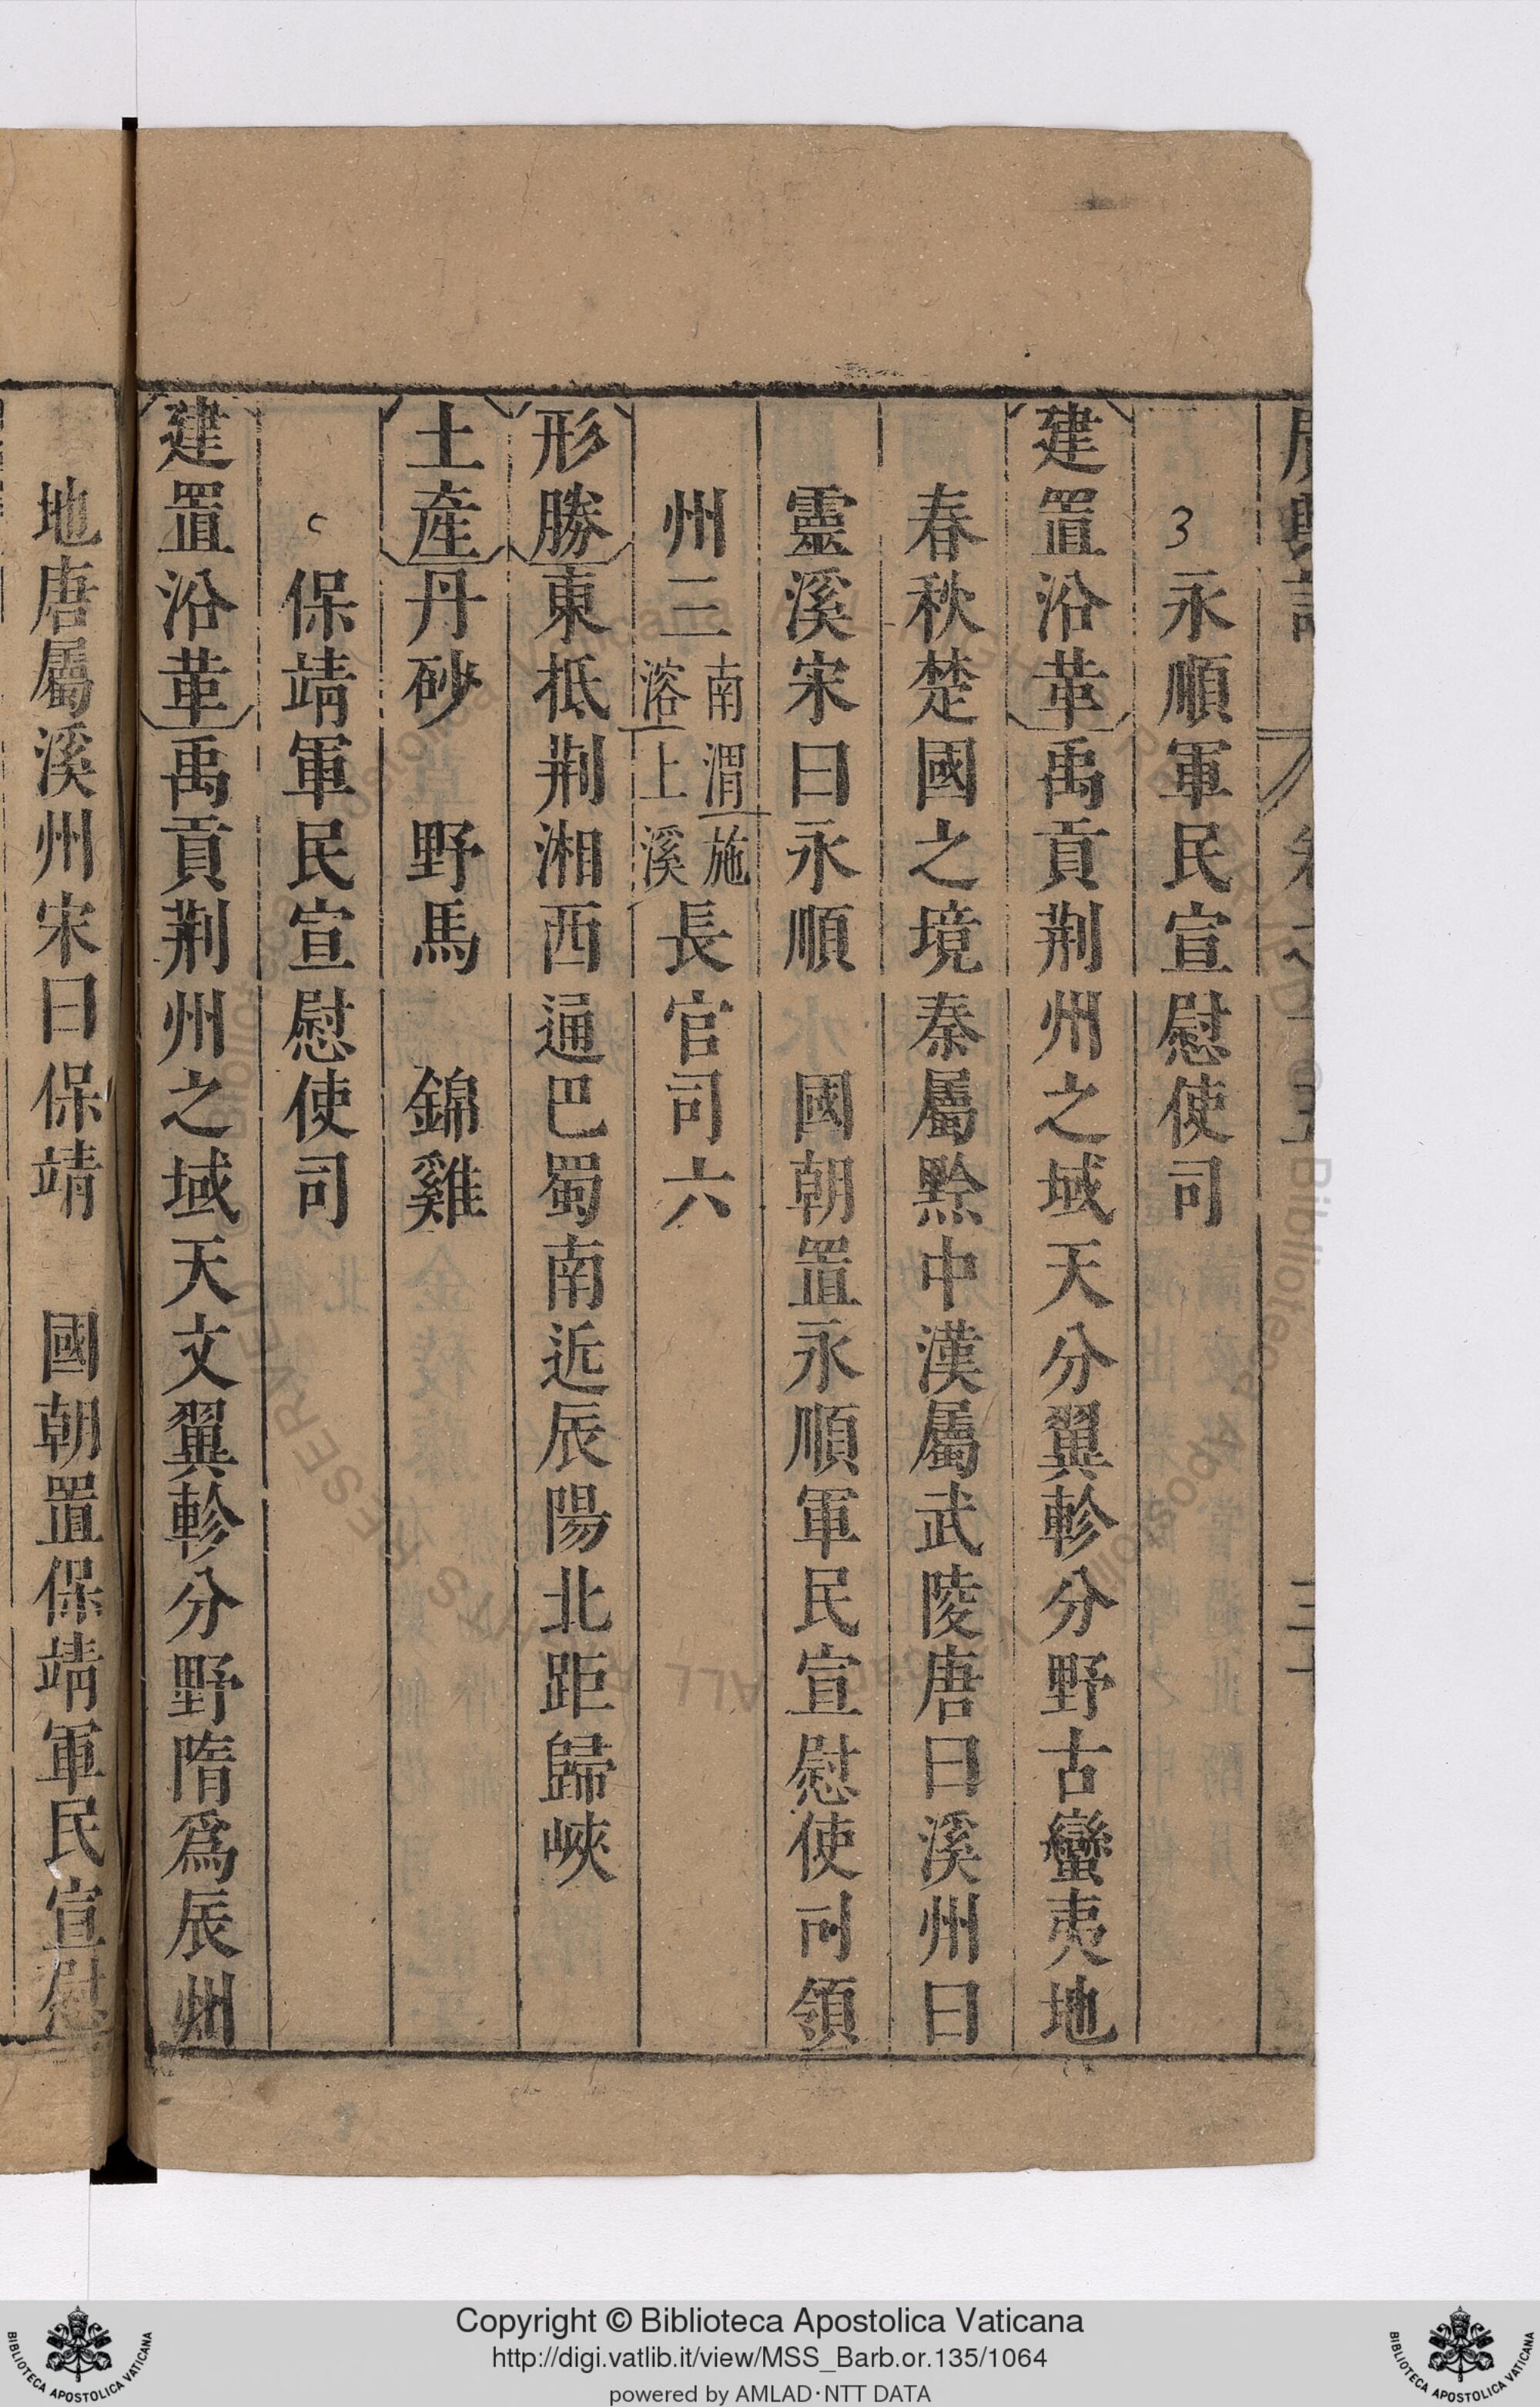 3 永順軍民宣慰使司
建置沿革禹貢荆州之域天分翼軫分野古蠻夷地
春秋楚國之境秦屬黔中漢屬武陵唐曰溪州曰
靈溪宋曰永順 國朝置永順軍民宣慰使司領
州三南渭施溶上溪長官司六
形勝東抵荆湘西通巴蜀南近辰陽北距歸峽
土產丹砂 野馬 錦雞
保靖軍民宣慰使司
建置沿革禹貢荆州之域天文翼軫分野隋爲辰州
地唐屬溪州宋曰保靖 國朝置保靖軍民宣慰
Copyright © Biblioteca Apostolica Vaticana
http://digi.vatlib.it/view/MSS_Barb.or.135/1064
powered by AMLAD·NTT DATA
BIBLIOTECA APOSTOLICA VATICANA
BIBLIOTECA APOSTOLICA VATICANA